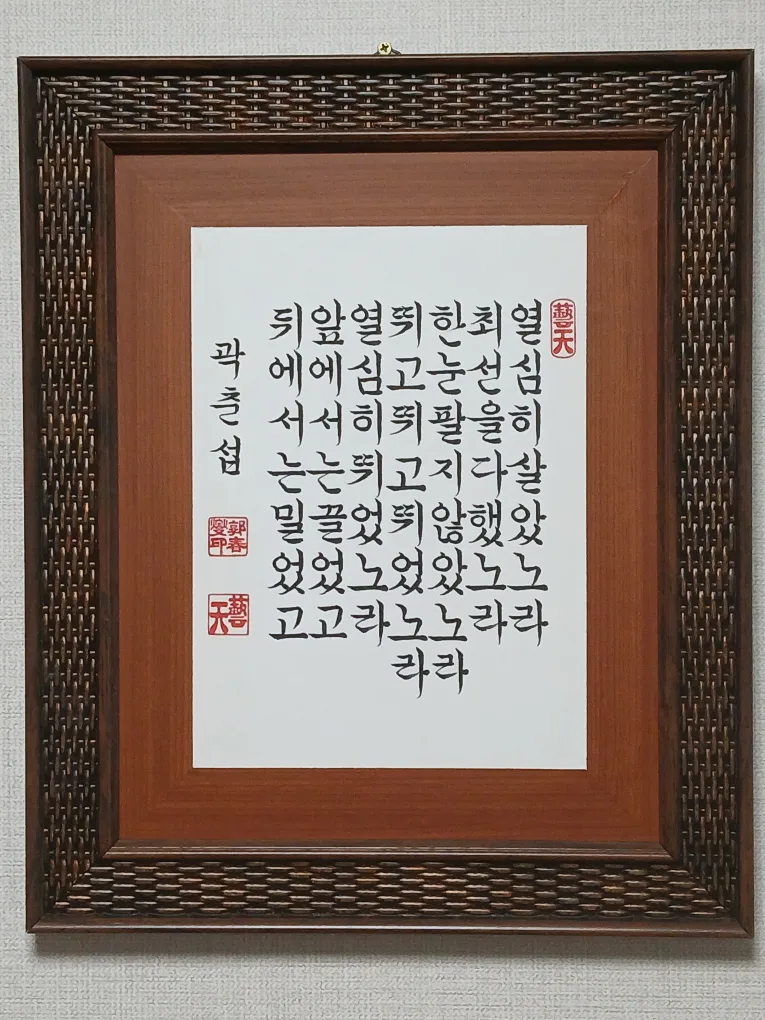 藝天
열심히살았노라
최선을다했노라
한눈팔지않았노라
뛰고뛰고뛰었노라
열심히뛰었노라
앞에서는끌었고
뒤에서는밀었고
곽춘섭
郭春燮印
藝天